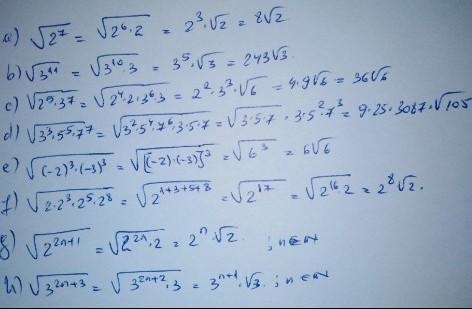 a) √2⁷ = √2⁶·2 = 2³·√2 = 8√2
b) √3¹¹ = √3¹⁰·3 = 3⁵·√3 = 243√3.
c) √2⁵·3⁷ = √2⁴·2·3⁶·3 = 2²·3³·√6 = 4·9√6 = 36√6
d) √3³·5⁵·7⁷ = √3²·5⁴·7⁶·3·5·7 = √3·5·7 · 3·5²·7³ = 9·25·3087·√105
e) √(-2)³·(-3)³ = √[(-2)·(-3)]³ = √6³ = 6√6
f) √2·2³·2⁵·2⁸ = √2¹⁺³⁺⁵⁺⁸ = √2¹⁷ = √2¹⁶·2 = 2⁸√2.
g) √2²ⁿ⁺¹ = √2²ⁿ·2 = 2ⁿ·√2. ; n∈N
h) √3²ⁿ⁺³ = √3²ⁿ⁺²·3 = 3ⁿ⁺¹·√3. ; n∈N